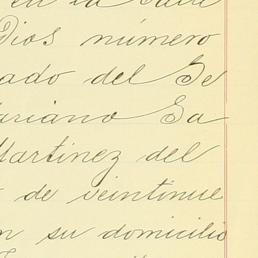 en la calle
Dios número
ado del Se
ariano Ga
Martinez del
de veintinue
n su domicilio